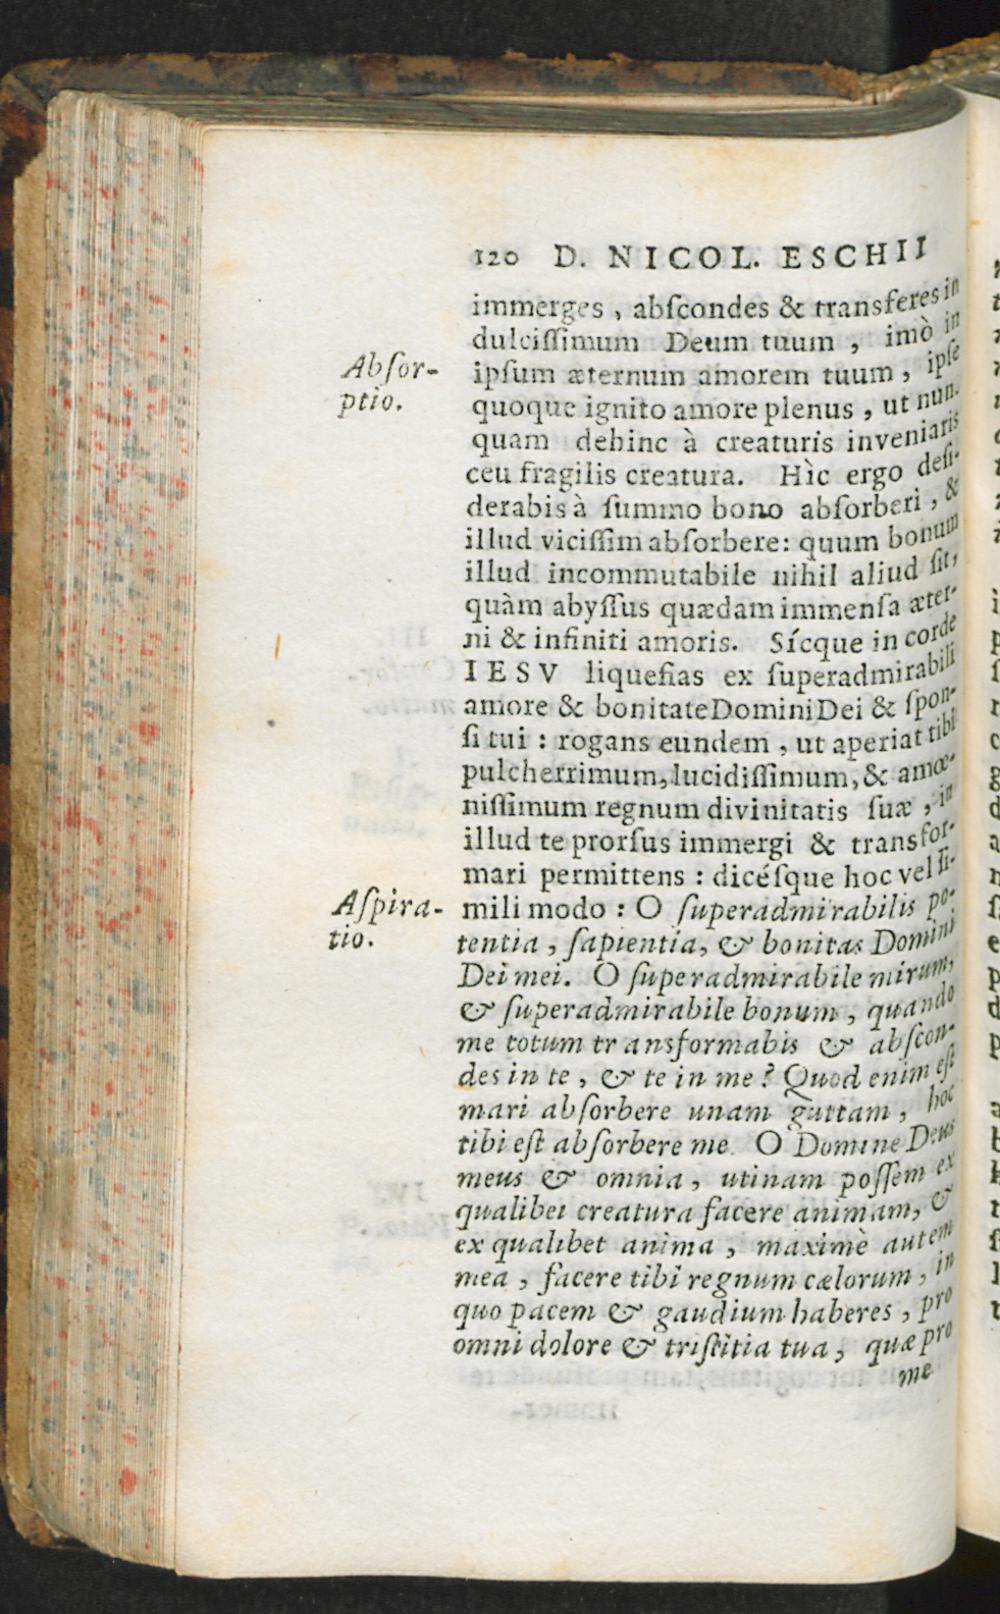 120 D. NICOL. ESCHII
immerges , abſcondes & transferes in
dulciſſimum Deum tuum , imò in
Abſor-
ptio.
ipſum æternum amorem tuum , ipſe
quoque ignito amore plenus , ut nun-
quam dehinc à creaturis inveniaris
ceu fragilis creatura. Hìc ergo deſi-
derabis à ſummo bono abſorberi , &
illud viciſſim abſorbere: quum bonum
illud incommutabile nihil aliud ſit,
quàm abyſſus quædam immenſa æter-
ni & infiniti amoris. Sícque in corde
IESV liquefias ex ſuperadmirabili
amore & bonitate Domini Dei & ſpon-
ſi tui : rogans eundem , ut aperiat tibi
pulcherrimum, lucidiſſimum, & amœ-
niſſimum regnum divinitatis ſuæ , in
illud te prorſus immergi & transfor-
mari permittens : dicéſque hoc vel ſi-
Aſpira-
tio.
mili modo : O ſuperadmirabilis po-
tentia , ſapientia, & bonitas Domini
Dei mei. O ſuperadmirabile mirum,
& ſuperadmirabile bonum , quando
me totum tr ansformabis & abſcon-
des in te , & te in me ? Quod enim eſt
mari abſorbere unam guttam , hoc
tibi eſt abſorbere me. O Domine Deus
meus & omnia , utinam poſſem ex
qualibet creatura facere animam, &
ex qualibet anima , maximè autem
mea , facere tibi regnum cælorum , in
quo pacem & gaudium haberes , pro
omni dolore & triſtitia tua , quæ pro
me